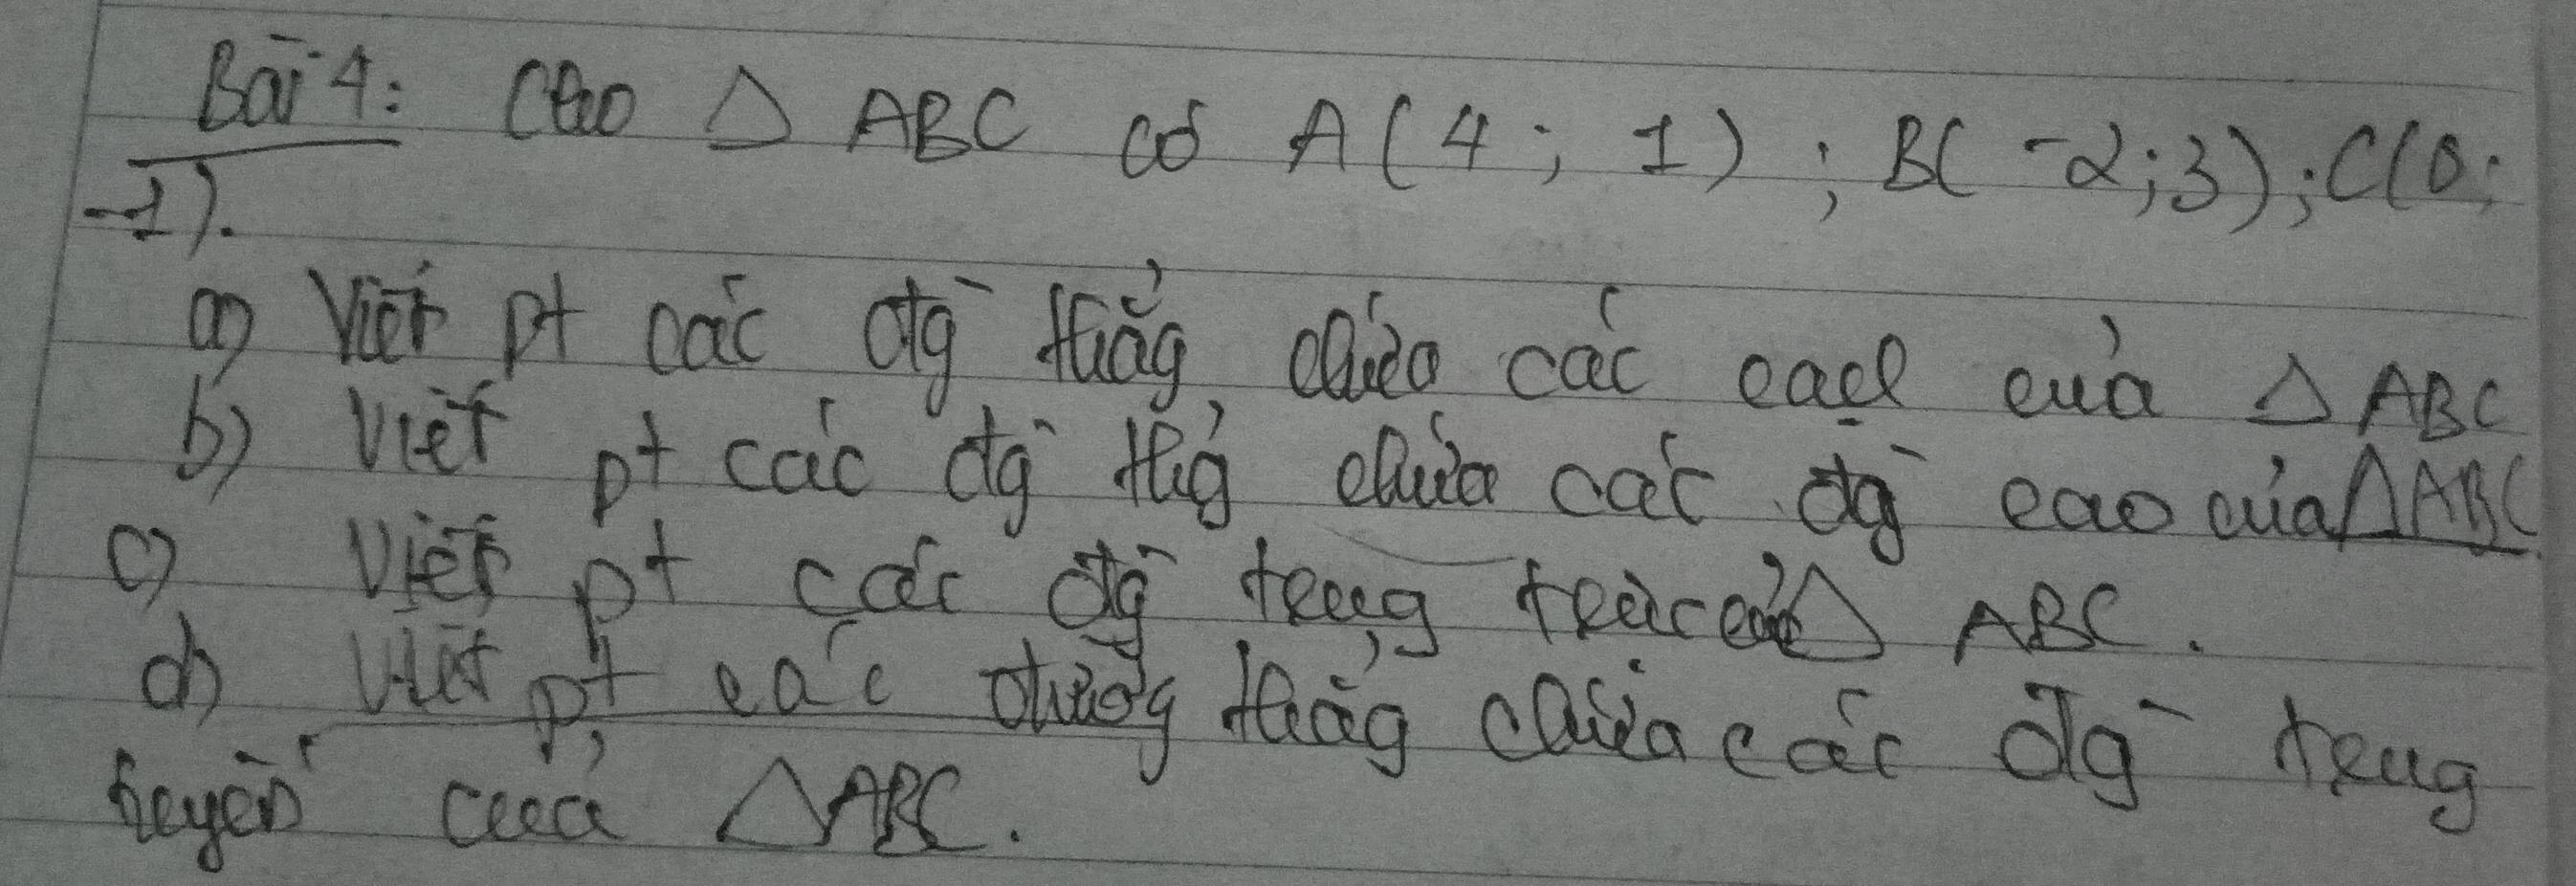 Bài 4: Cho △ ABC có A(4; 1); B(-2;3); C(0;
-1).
a) Viết pt các đg` thẳg chứa các cạnh của △ ABC
b) Viết pt các đg` thẳg chứa các đg` cao của △ABC
c) Viết pt các đg` trung trực của △ ABC.
d) Viết pt các đường thẳg chứa các đg` trung
tuyến của △ABC.